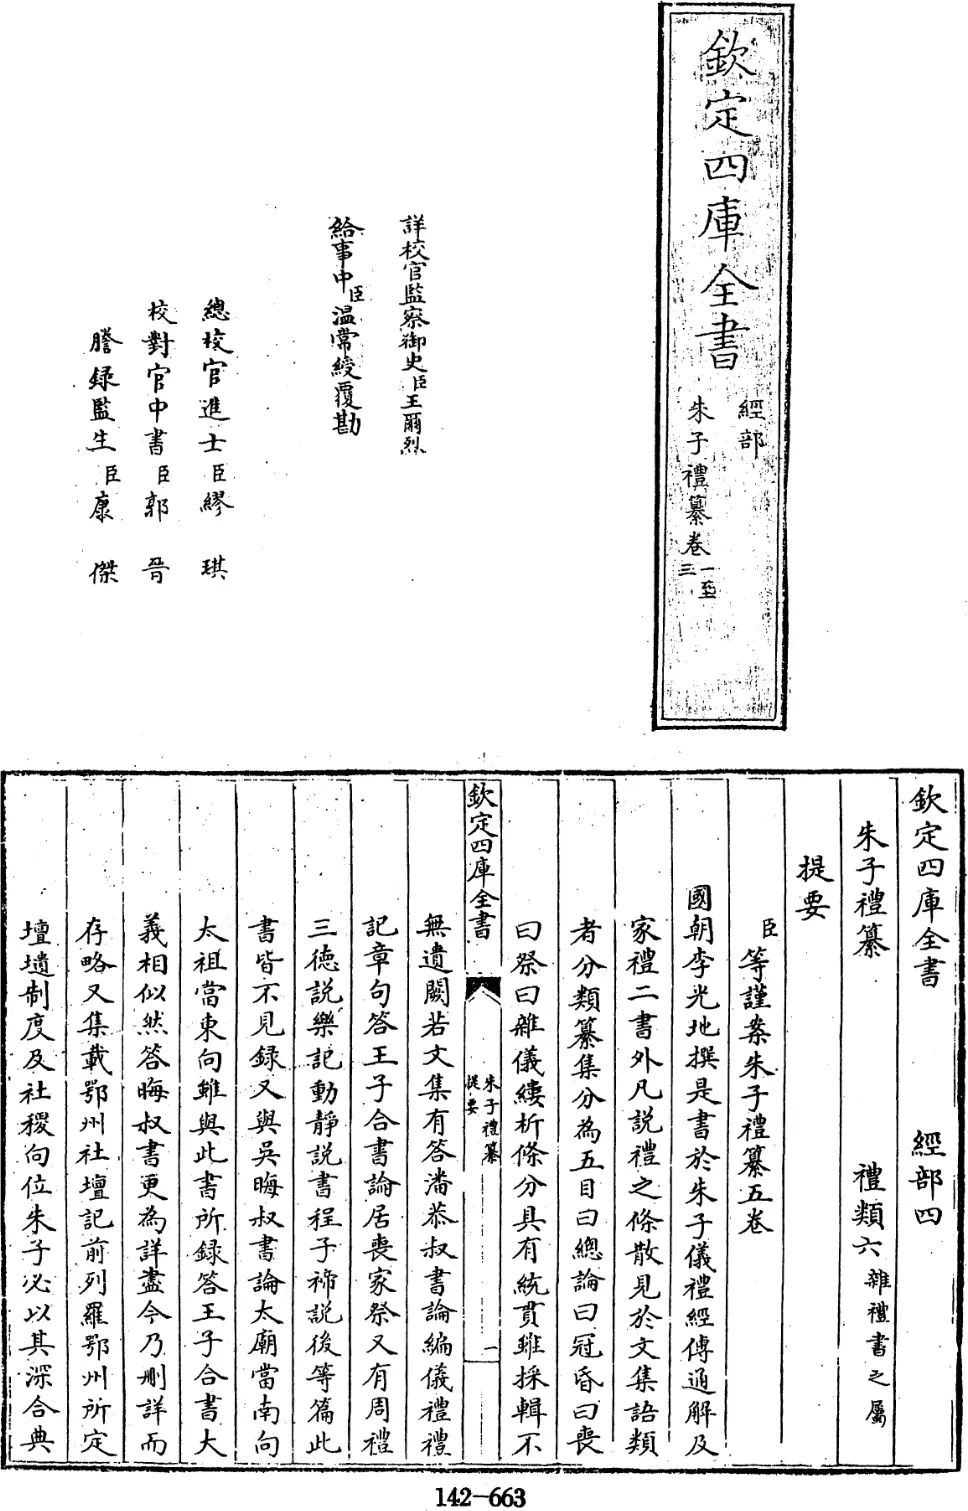 欽定四庫全書
經部
朱子禮纂卷一至三
詳校官監察御史臣王爾烈
給事中臣温常綬覆勘
總校官進士臣繆琪
校對官中書臣郭晉
謄録監生臣康傑
欽定四庫全書 經部四
朱子禮纂 禮類六雜禮書之屬
提要
臣等謹案朱子禮纂五卷
國朝李光地撰是書於朱子儀禮經傳通解及
家禮二書外凡説禮之條散見於文集語類
者分類纂集分為五目曰總論曰冠昏曰喪
曰祭曰雜儀縷析條分具有統貫雖採輯不
欽定四庫全書
朱子禮纂
提要
一
無遺闕若文集有答潘恭叔書論編儀禮禮
記章句答王子合書論居喪家祭又有周禮
三徳説樂記動静説書程子禘説後等篇此
書皆不見録又與吳晦叔書論太廟當南向
太祖當東向雖與此書所録答王子合書大
義相似然答晦叔書更為詳盡今乃刪詳而
存略又集載鄂州社壇記前列羅鄂州所定
壇壝制度及社稷向位朱子必以其深合典
142-663